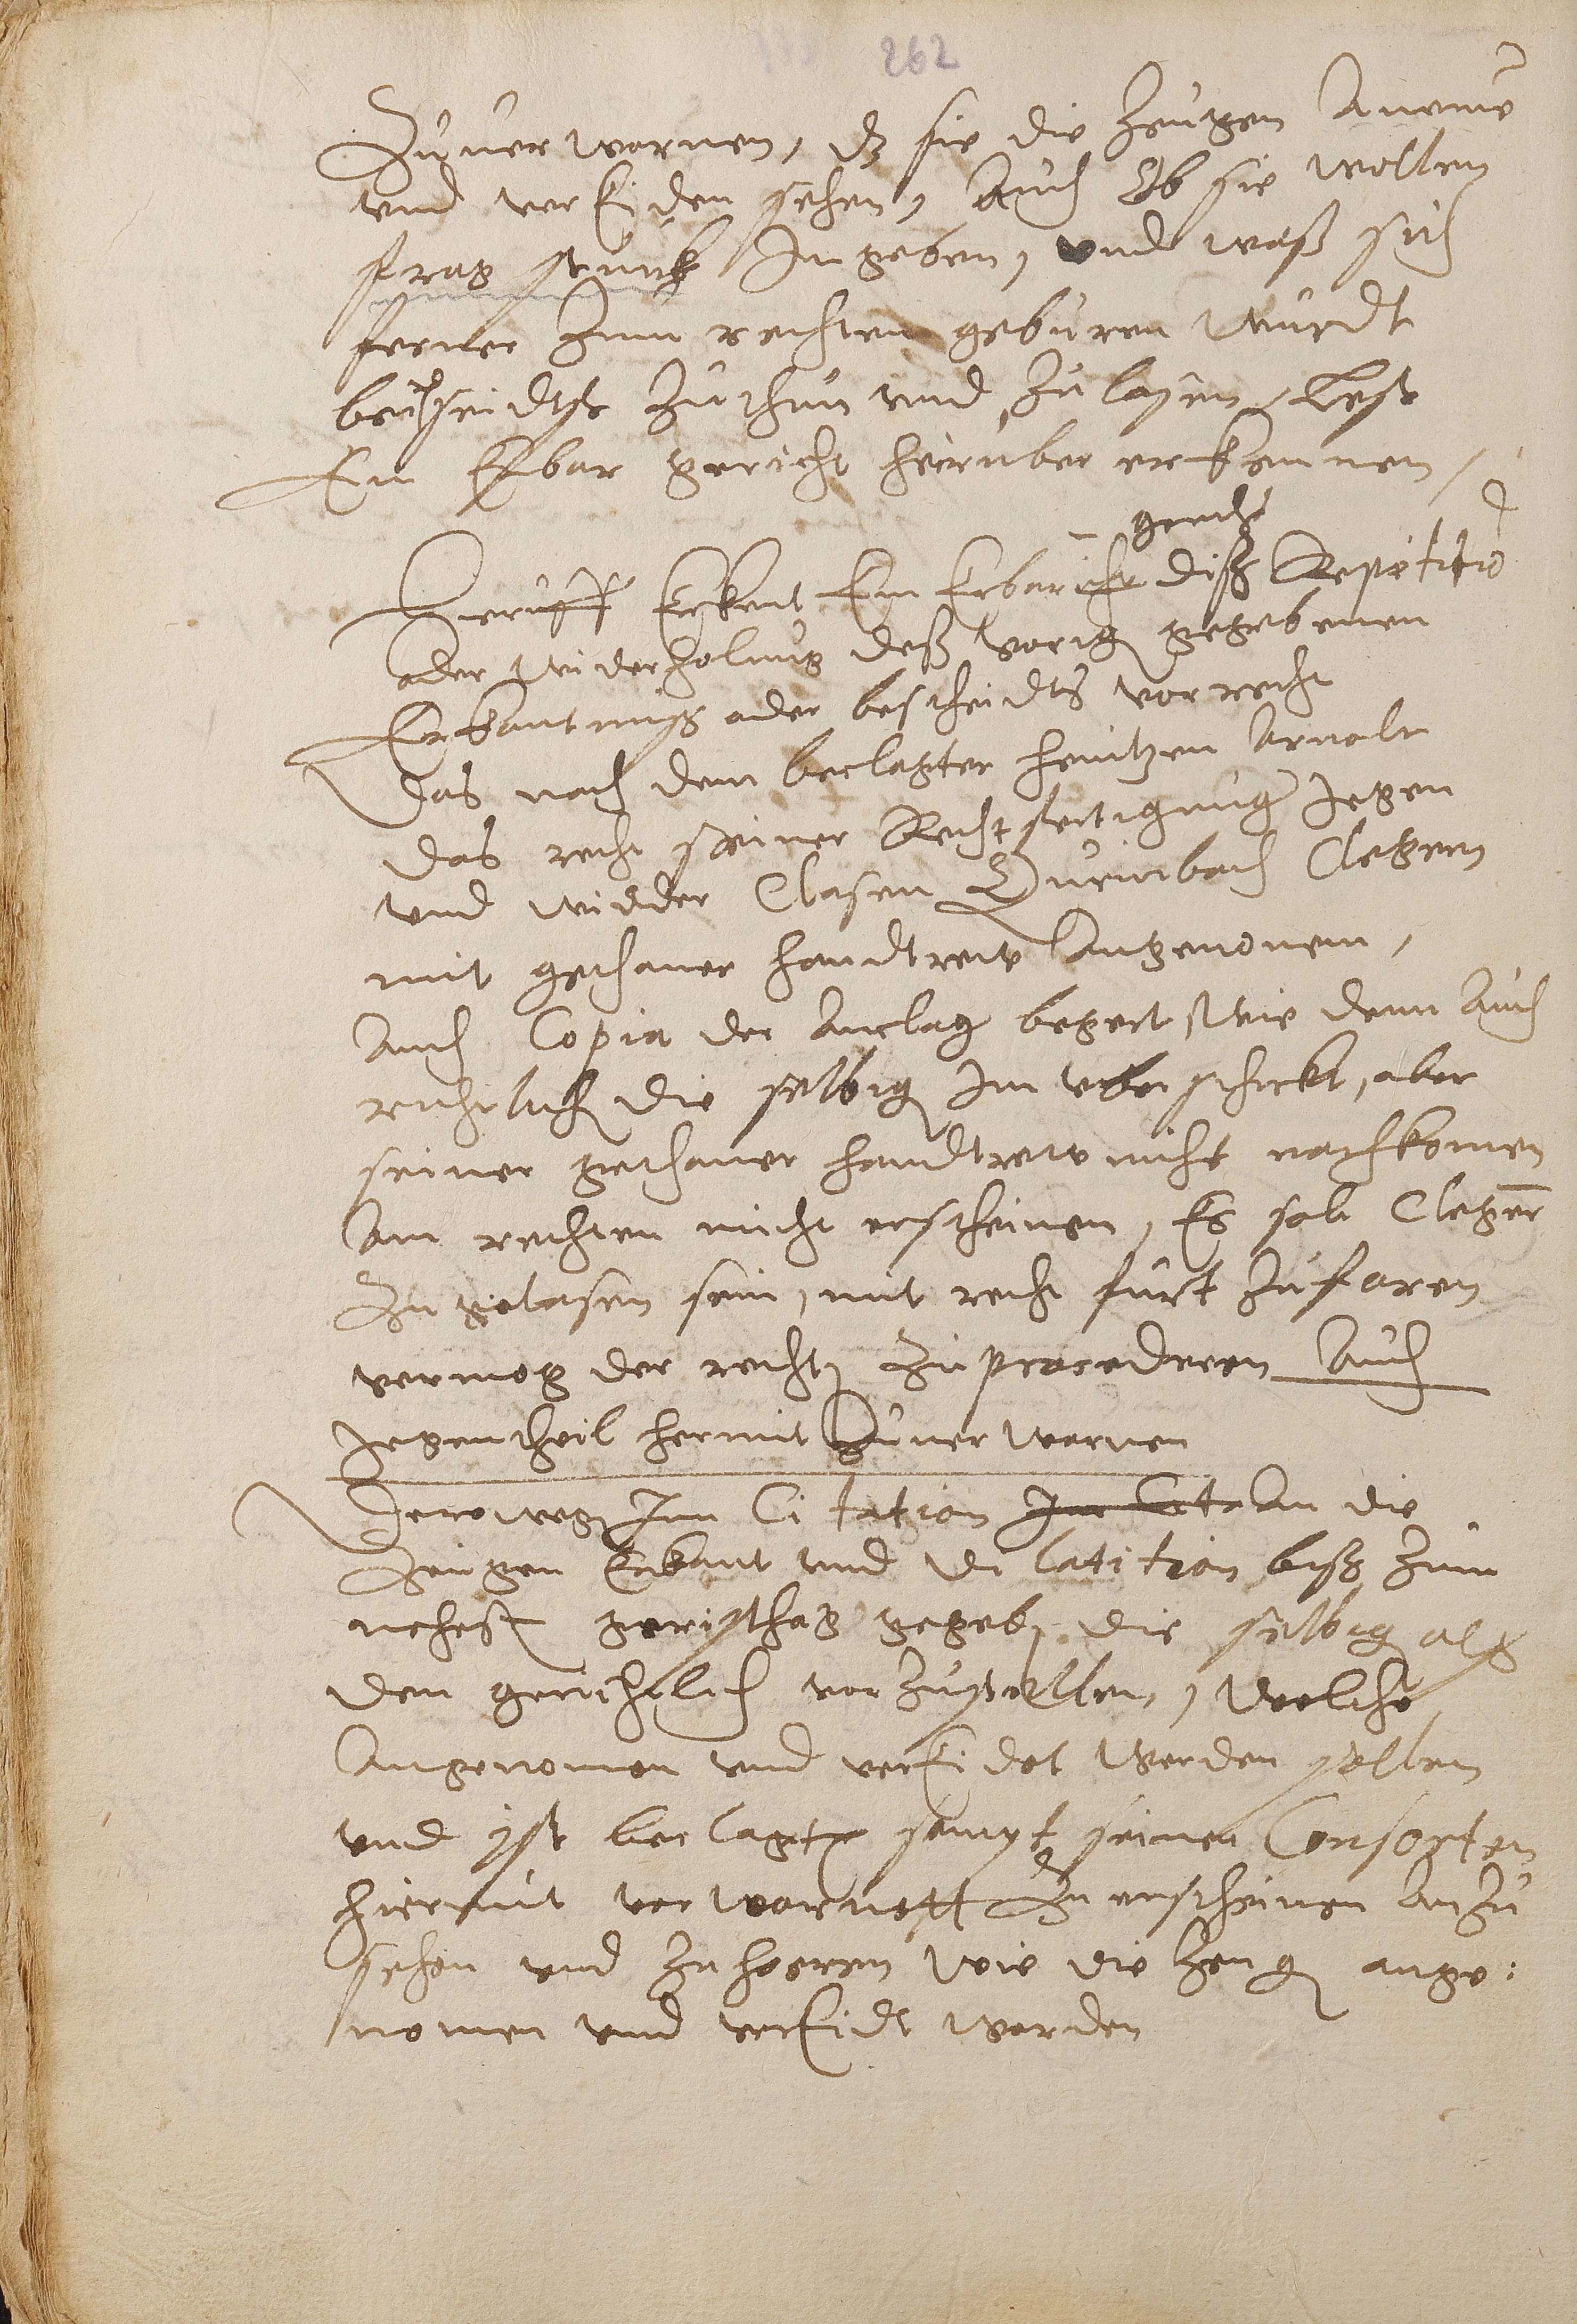 262
Zuuerwarnen, dz sie die Zeugen Anemē
vnd verEiden sehen, Auch Ob sie wollen
frag stuck In geben, vnd waß sich
ferner Zum rechten geburen wurdt
bescheidtlich Zuthun vnd Zulaßen, Lest
Ein Erbar gericht hierüber erkennen,
Hieruff Erkent Ein Erbar gericht diß Repetitio
oder widerholung deß vorig gegebenen
Erkantniß oder bescheidts vor recht
Das nach dem beclagter heintzen Arnolt
das recht seiner Rechtfertigung Jegen
vnd widder Clasen Durinbach Clegern
mit gethaner handtrew Angenomen,
Auch Copia der Anclag begert, Wie denn Auch
richtlich die selbig Im uberschickt, aber
seiner gethaner handtrew nicht nachkomen
Am rechten nicht erscheinen, Es soll Clegern
Zugelasen sein, mit recht furt Zufaren
vermog der recht Zuprocederen Auch
Jegentheil hermit Zuuerwarnen
Derowegen Im Citation An die
Zeugen Erkant vnd Dilatition biß Zum
nehest gerichthag gegeb, die selbig alß
den gerichtlich vorZustellen, welche
Angenomen vnd verEidet werden sollen
vnd ist beclagter sampt seinen Consorten
hiermit verwarnett Zu erscheinen AnZu
sehen vnd Zu hoeren wie die Zeug ange:
nomen vnd verEidt worden